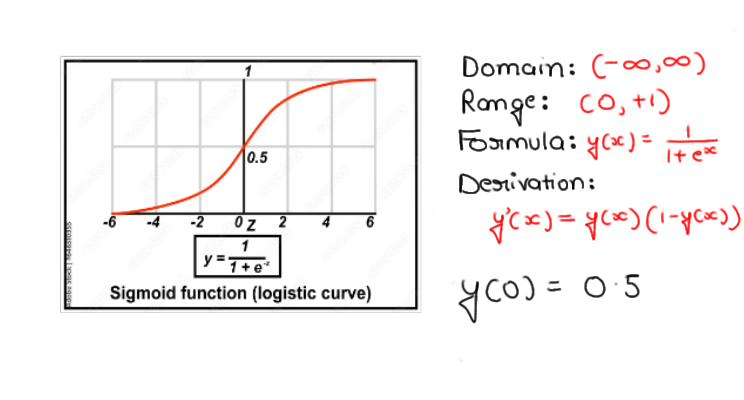 1
0.5
-6 -4 -2 0 Z 2 4 6
y = 1 / 1 + e^-z
Sigmoid function (logistic curve)
Domain: (-∞,∞)
Range: (0, +1)
Formula: y(x) = 1 / 1+ e^x
Derivation:
y'(x) = y(x) (1-y(x))
y(0) = 0.5